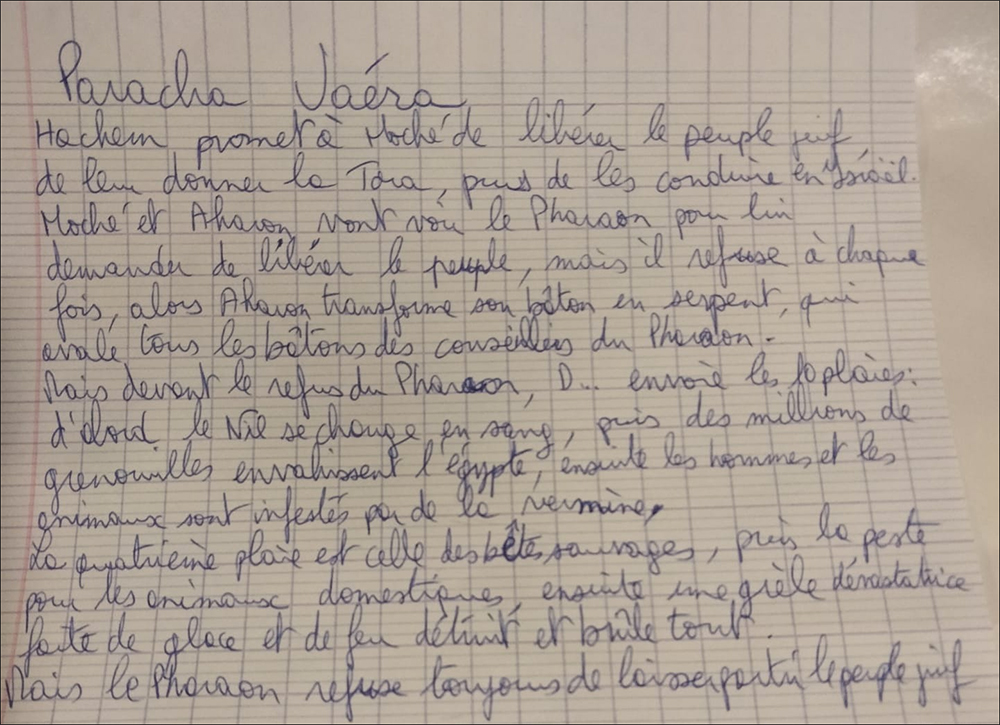 Paracha Vaéra
Hachem promet à Moché de libérer le peuple juif,
de leur donner la Tora, puis de les conduire en Israël.
Moché et Aharon vont voir le Pharaon pour lui
demander de libérer le peuple, mais il refuse à chaque
fois, alors Aharon transforme son bâton en serpent, qui
avale tous les bâtons des conseillers du Pharaon.
Mais devant le refus du Pharaon, D... envoie les 10 plaies:
d'abord le Nil se change en sang, puis des millions de
grenouilles envahissent l'égypte, ensuite les hommes et les
animaux sont infestés par de la vermine,
La quatrième plaie est celle des bêtes sauvages, puis la peste
pour les animaux domestiques, ensuite une grèle dévastatrice
faite de glace et de feu détruit et brûle tout.
Mais le Pharaon refuse toujours de laisser partir le peuple juif